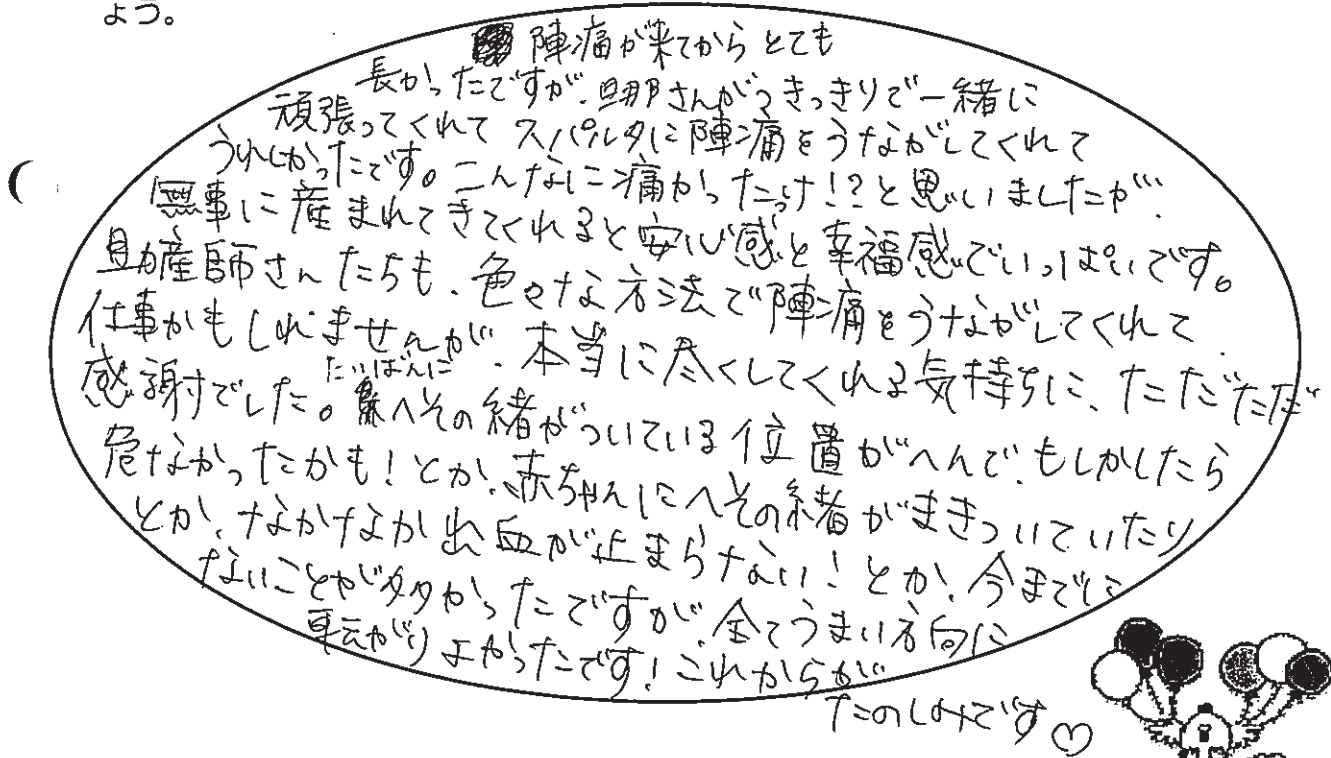 ょう。
陣痛が来てからとても
長かったですが、旦那さんがつきっきりで一緒に
頑張ってくれてスパルタに陣痛をうながしてくれて
うれしかったです。こんなに痛かったっけ!?と思いましたが、
無事に産まれてきてくれると安心感と幸福感でいっぱいです。
助産師さんたちも、色々な方法で陣痛をうながしてくれて
仕事かもしれませんが、本当に尽くしてくれる気持ちに、ただただ
感謝でした。
たいばんに
へその緒がついている位置がへんで、もしかしたら
危なかったかも!とか、赤ちゃんにへその緒がまきついていたり
とか、なかなか出血が止まらない!とか、今までに
ないことが多かったですが、全てうまい方向に
転がりよかったです!これからが
たのしみです♡